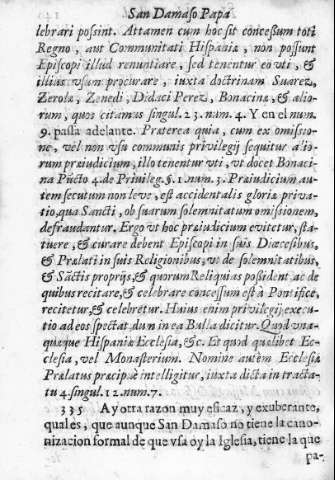 San Damaso Papa
lebrari possint. Attamen cum hoc sit concessum toti
Regno, aut Communitati Hispania, non possunt
Episcopi illud renuntiare, sed tenentur eo vti, &
illius vsum procurare, iuxta doctrinam Suarez,
Zerola, Zenedi, Didaci Perez, Bonacina, & alio-
rum, quos citamus singul. 23. num. 4. Y en el num.
9. passa adelante. Præterea quia, cum ex omissio-
ne, vel non vsu communis privilegij sequitur alio-
rum præiudicium, illo tenentur vti, vt docet Bonaci-
na Pūcto 4. de Privileg. §. 1. num. 3. Præiudicium au-
tem secutum non leve, est accidentalis gloriæ priva-
tio, qua Sancti, ob suarum solemnitatum omissionem,
defraudantur. Ergo vt hoc præiudicium evitetur, sta-
tuere, & curare debent Episcopi in suis Diœcesibus,
& Prælati in suis Religionibus, vt de solemnitatibus,
& Sāctis proprijs, & quorum Reliquias possident ac de
quibus recitare, & celebrare concessum est à Pontifice,
recitetur, & celebretur. Huius enim privilegij execu-
tio ad eos spectat, dum in ea Bulla dicitur. Quod vna-
quæque Hispaniæ Ecclesia, &c. Et quod quælibet Ec-
clesia, vel Monasterium. Nomine autem Ecclesiæ
Prælatus præcipuè intelligitur, iuxta dicta in tracta-
tu 4. singul. 12. num. 7.
335 Ay otra razon muy eficaz, y exuberante,
qual es, que aunque San Damaso no tiene la cano-
nizacion formal de que vsa oy la Iglesia, tiene la que
pa-